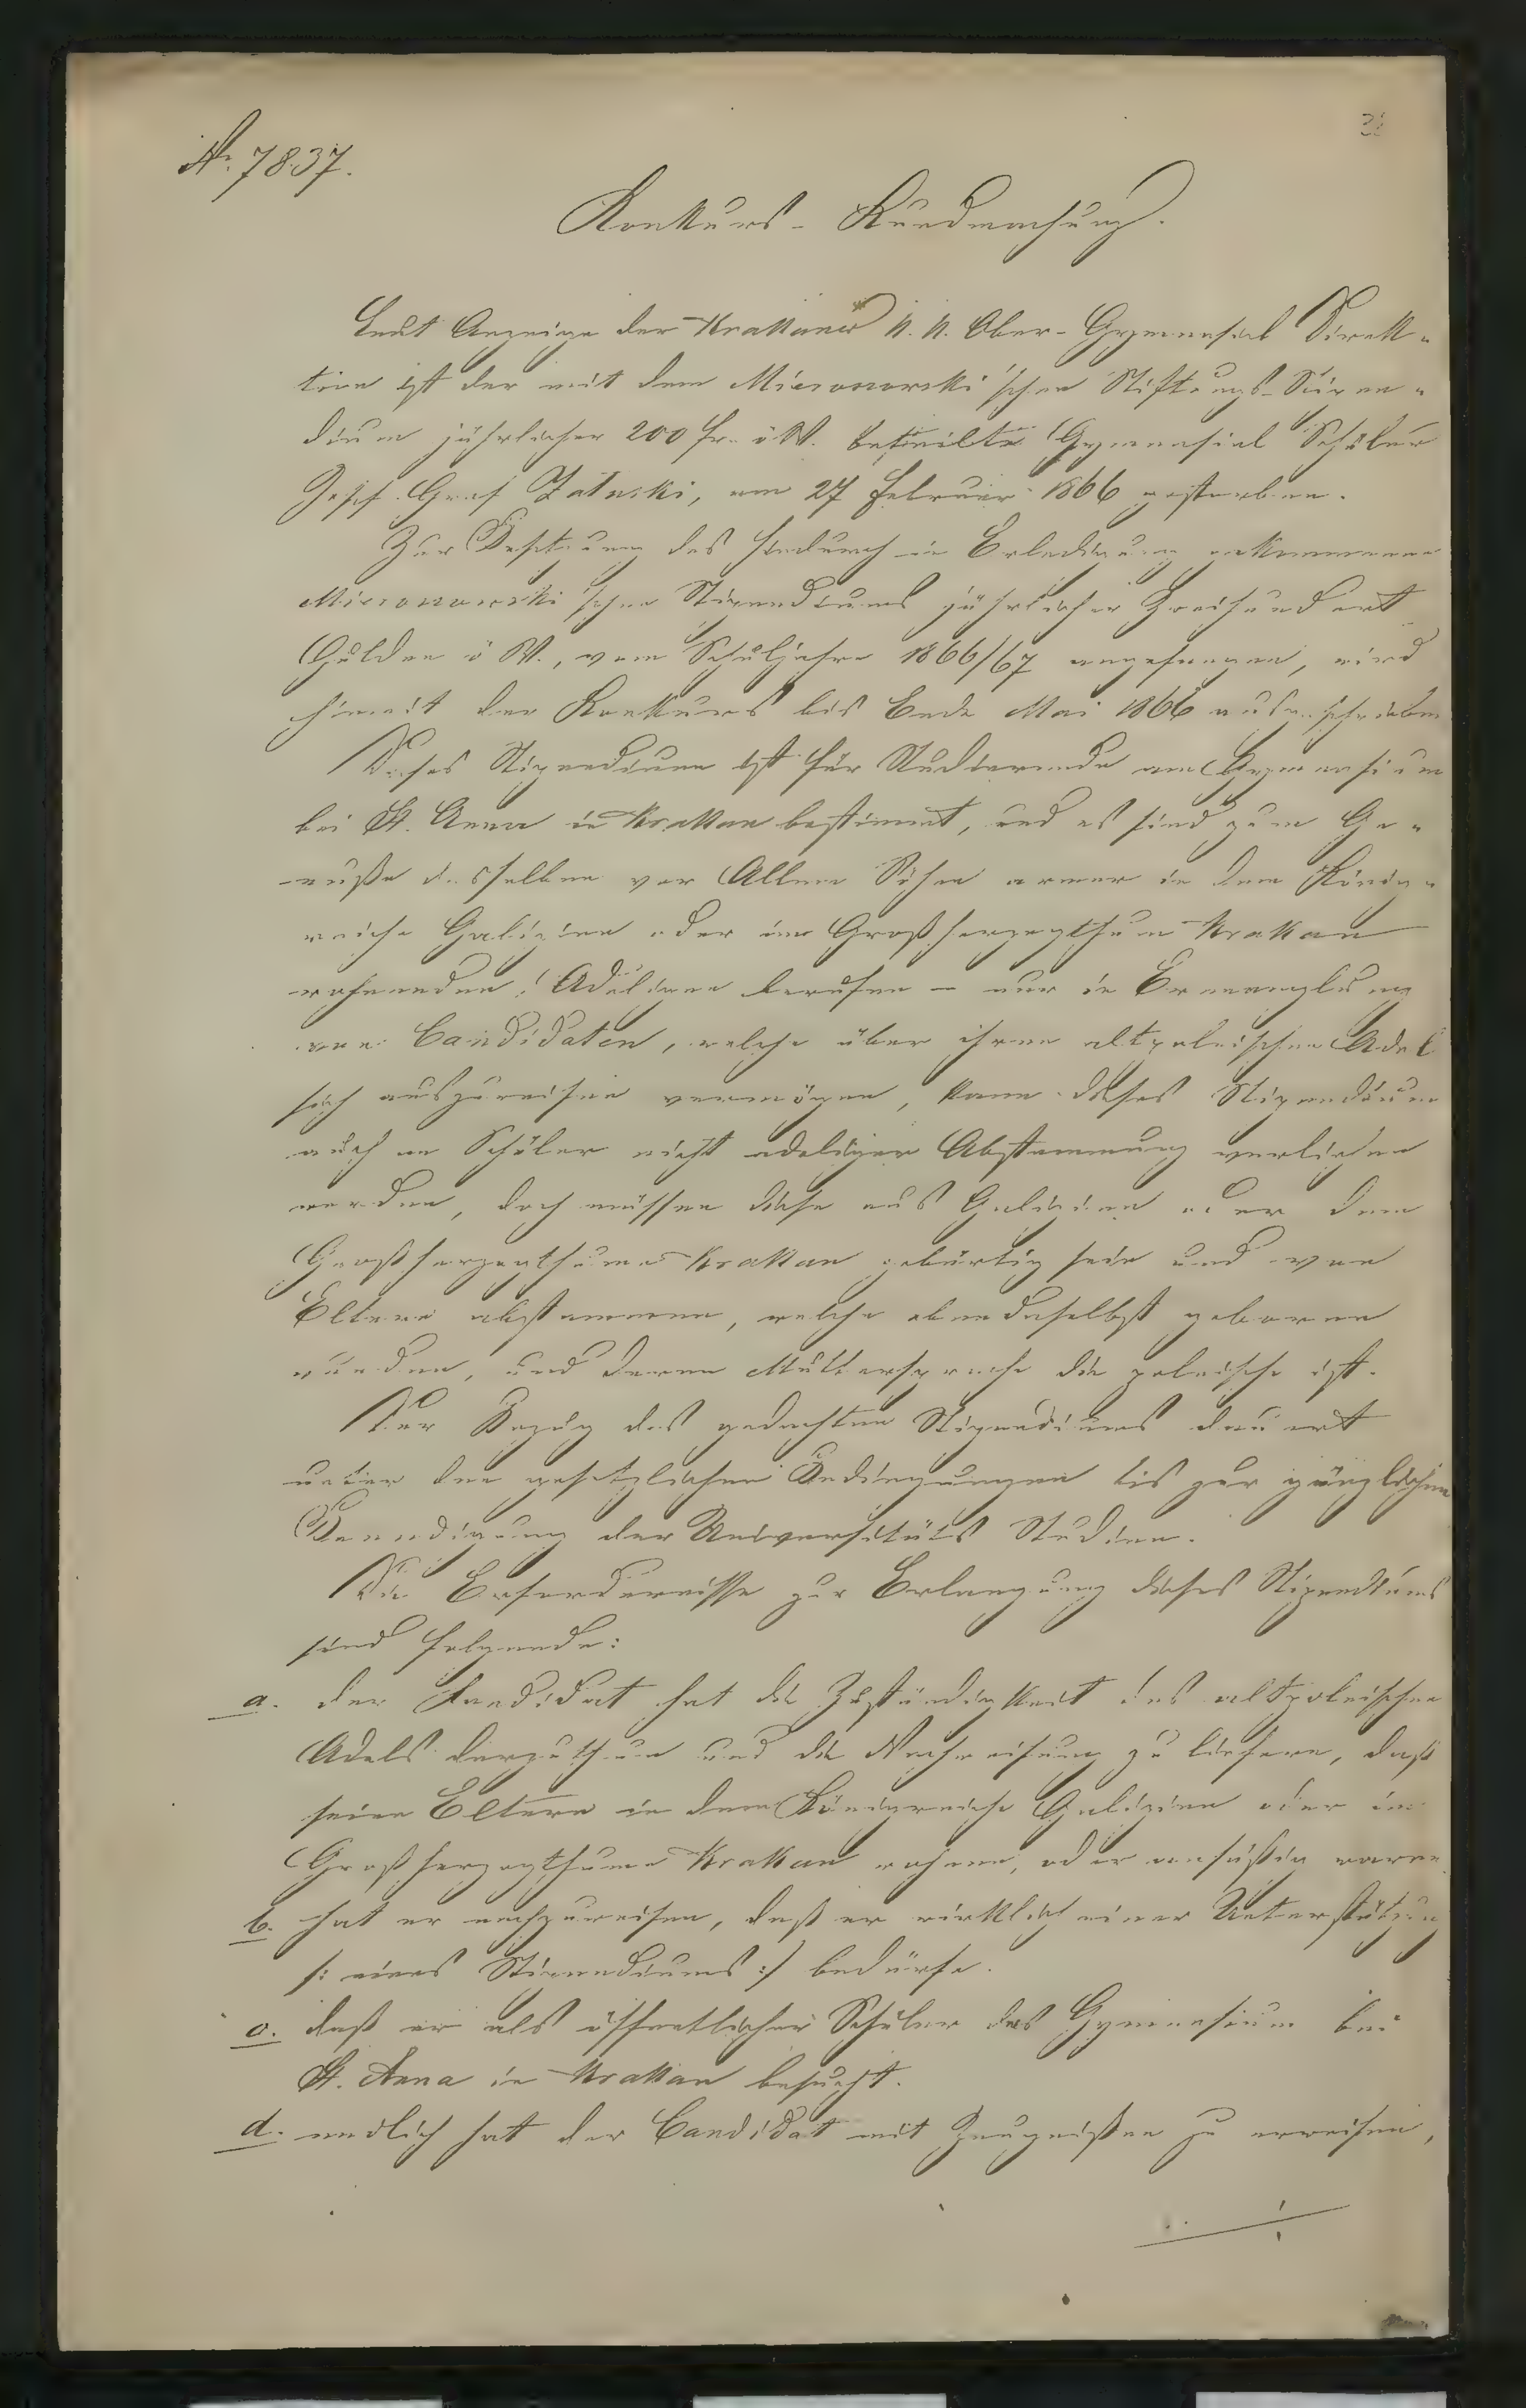 Nr. 7837.
Konkurs-Kundmachung.
Laut Anzeige der Krakauer k. k. Ober-Gymnasial Direk-
tion ist der mit dem Mieronowski'schen Stiftungs-Stipen-
dium jährlicher 200 fr. ö W. betheilte Gymnasial Schüler
Josef Graf Załuski, am 27 Februar 1866 gestorben.
Zur Besetzung des hiedurch in Erledigung gekommenen
Mieronowski'schen Stipendiums jährlicher Zweihundert
Gulden ö W., vom Schuljahre 1866/67 angefangen, wird
hiemit der Konkurs bis Ende Mai 1866 ausgeschrieben
Dieses Stipendium ist für Studierende am Gymnasium
bei St. Anna in Krakau bestimmt, und es sind zum Ge-
nuße desselben vor Allem Söhne armer in dem König-
reiche Galizien oder im Großherzogthum Krakau
wohnenden Adeligen berufen – nur in Ermanglung
von Candidaten, welche über ihren altpolnischen Adel
sich auszuweisen vermögen, kann dieses Stipendium
auch an Schüler nicht adeliger Abstammung verliehen
werden, doch müssen diese aus Galizien oder dem
Großherzogthume Krakau gebürtig sein und von
Eltern abstammen, welche ebendaselbst geboren
wurden, und deren Muttersprache die polnische ist.
Der Bezug des gedachten Stipendiums dauert
unter den gesetzlichen Bedingungen bis zur gänzlichen
Beendigung der Universitäts Studien.
Die Erfordernisse zur Erlangung dieses Stipendiums
sind folgende:
a. der Kandidat hat die Zuständigkeit des altpolnischen
Adels darzuthun und die Nachweisung zu liefern, daß
seine Eltern in dem Königreiche Galizien oder im
Großherzogthume Krakau wohnen, oder ansäßig waren
b. hat er nachzuweisen, daß er wirklich einer Unterstützung
/: eines Stipendiums :/ bedürfe.
c. daß er als öffentlicher Schüler das Gymnasium bei
St. Anna in Krakau besucht.
d. endlich hat der Candidat mit Zeugnißen zu erweisen,
./.